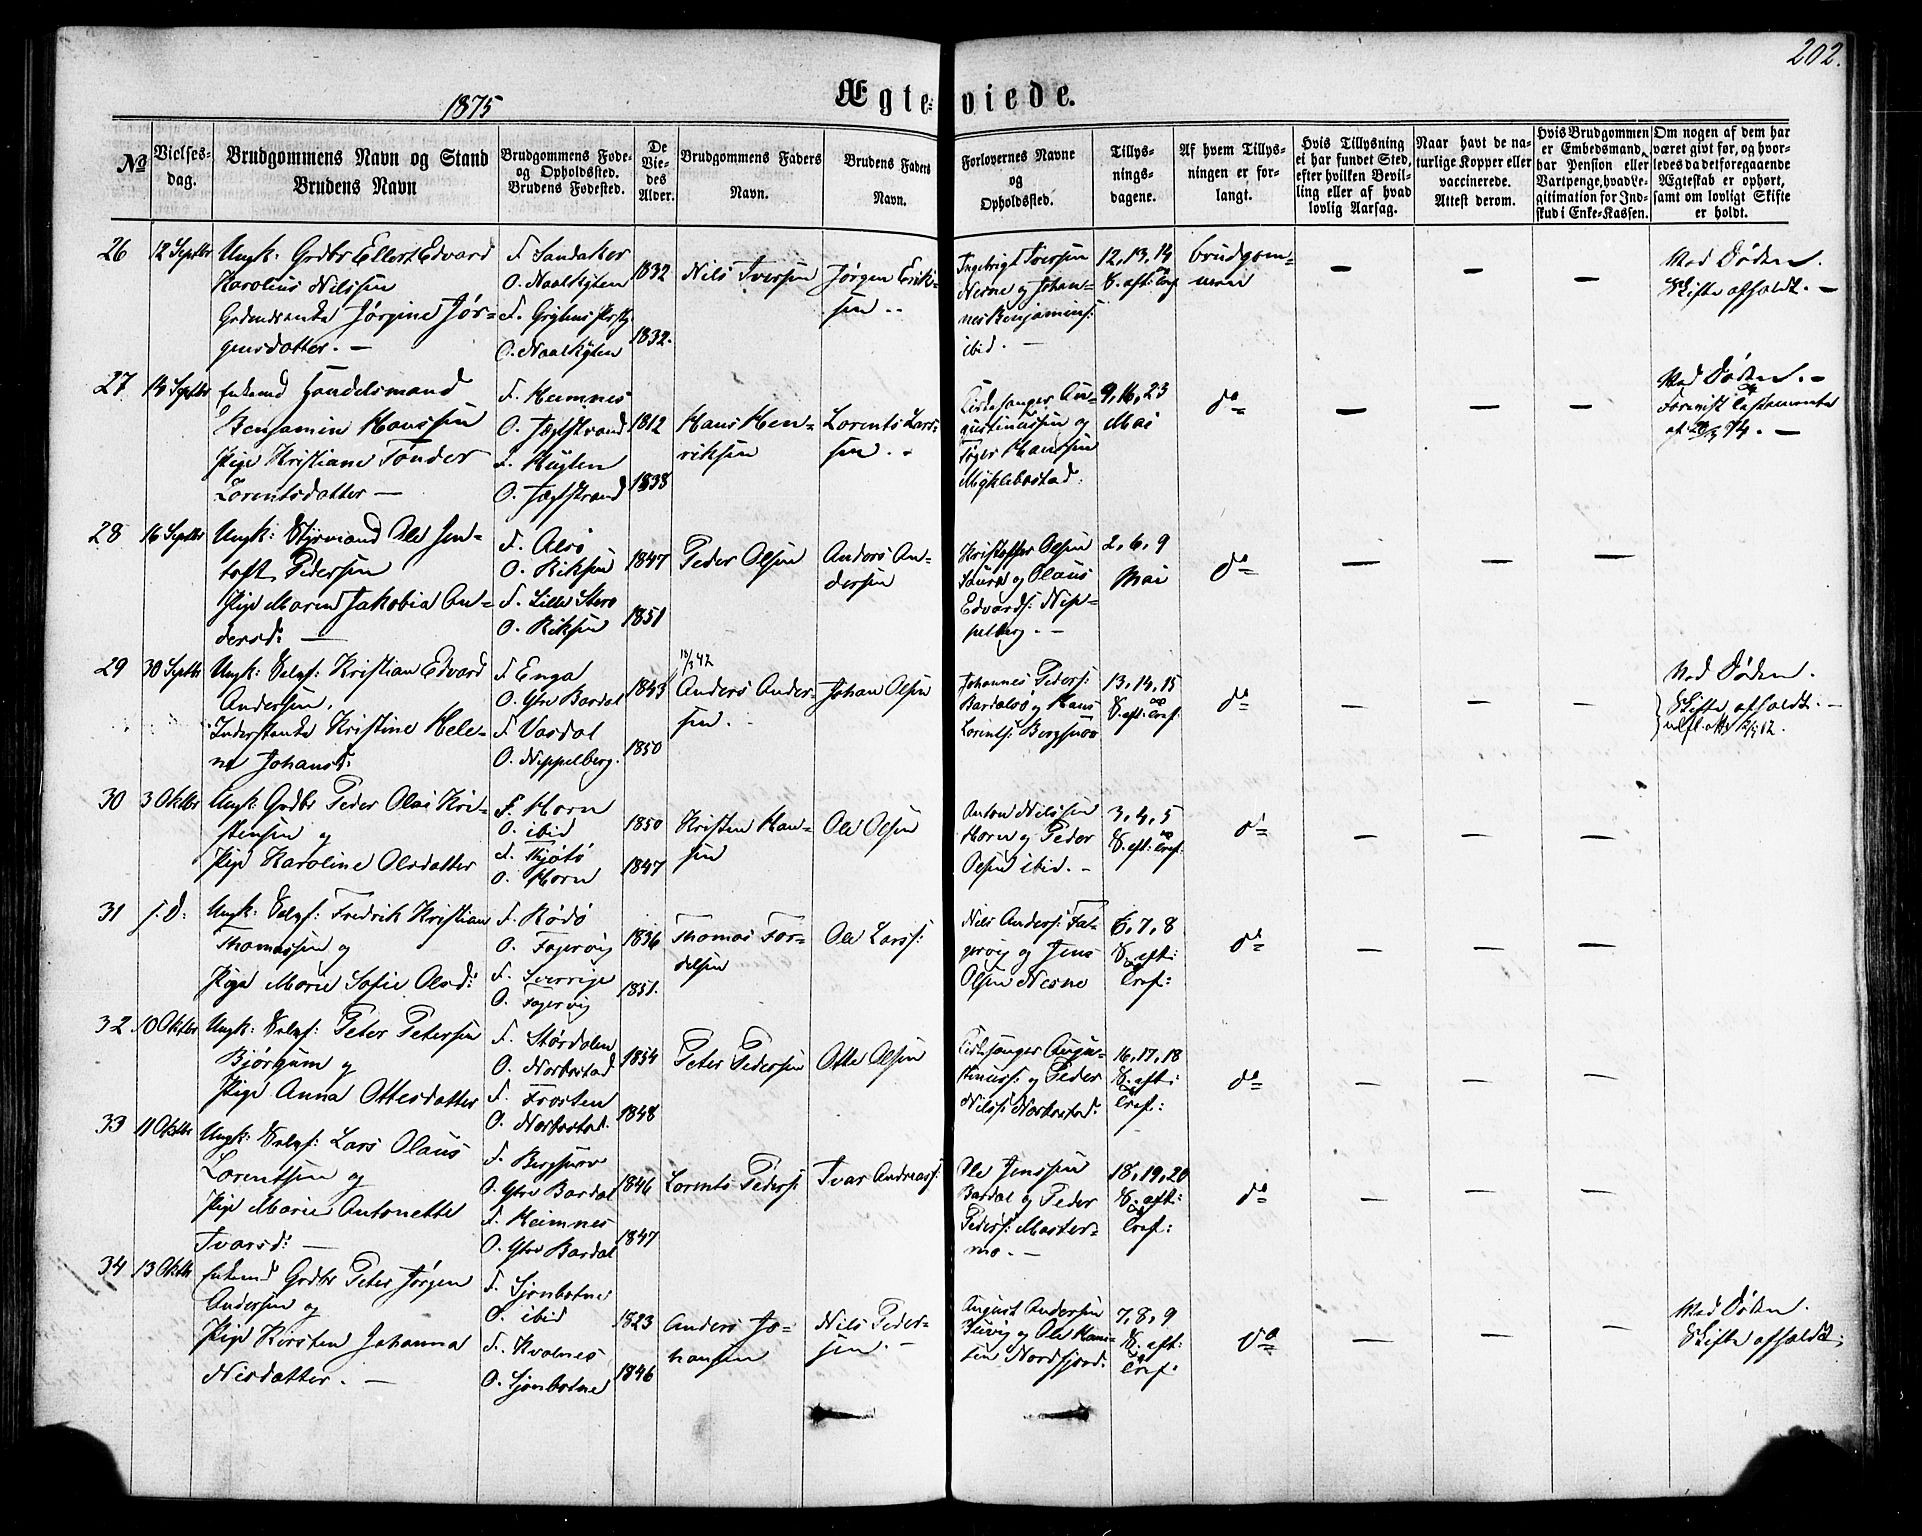 202.
1875
Ægteviede.
No
Vielses-
dag.
Brudgommens Navn og Stand
Brudens Navn
Brudgommens Føde-
og Opholdssted.
Brudens Fødested.
De
Vie-
des
Alder.
Brudgommens Faders
Navn.
Brudens Faders
Navn.
Forlovernes Navne
og
Opholdssted.
Tillys-
nings-
dagene.
Af hvem Tillys-
ningen er for-
langt.
Hvis Tillysning
ei har fundet Sted,
efter hvilken Bevil-
ling eller af hvad
lovlig Aarsag.
Naar havt de na-
turlige Kopper eller
vaccinerede.
Attest derom.
Hvis Brudgommen
er Embedsmand,
har Pension eller
Vartpenge, hvad Le-
gitimation for Ind-
skud i Enke-Kassen.
Om nogen af dem har
været givt før, og hvor-
ledes da det foregaaende
Ægteskab er ophørt,
samt om lovligt Skifte
er holdt.
26
12 Septbr
Ungk: Grdbr Ellert Edvard
Karolius Nilssen
Jørgine Jør-
gensdatter. —
F. Sandaker
O. Naalskyten
F.
O. Naalskyten
1832
1832.
Nils Iversen
Jørgen Erik-
sen
Ingebrigt Iversen
Nesne og Johan-
nes Benjamins:
ibid. —
12, 13, 14
S. eft:
brudgom-
men
—
—
—
Ved Døden.
Skifte afholdt. —
27
14 Septbr
Enkemd Handelsmand
Benjamin Hanssen
Pige Kristiane Tønder
Lorentsdatter —
F. Hemnes
O. Jægtstrand
F.
O. Jægtstrand
1812
1838
Hans Hen-
riksen
Lorents Lars-
sen.
Kirkesanger Au-
gustinussen og
Hanssen
Myklebostad.
9, 16, 23
Mai
do
—
—
—
Ved Døden. —
af
28
16 Septbr
Ungk: Styrmand Ole Jen-
toft Pedersen
Pige Maren Jakobia An-
dersd: —
F.
O.
F. Lille
O.
1847
1851
Peder Olsen
Anders An-
dersen
Kristoffer Olsen
og Olaus
Edvards: Nip-
pelberg. —
2, 6, 9
Mai
do
—
—
—
29
30 Septbr
Ungk: Selvf: Kristian Edvard
Andersen.
Inderstenke Kristine Hele-
ne Johansd:
F. Enga
O. Ytre Bardal
F.
O. Nippelberg.
1843
1850
Anders Ander-
sen.
Johan Olsen
Johannes Peders:
og Hans
Lorents:
13, 14, 15
S. eft:
do
—
—
—
Ved Døden.
Skifte afholdt. —
30
3 Oktbr
Ungk: Grdbr Peder Olai Kri-
stensen og
Pige Karoline Olsdatter
F. Horn
O. ibid
F.
O. Horn
1850
1847
Kristen Han-
sen
Ole Olsen
Anton Nilssen
Horn og Peder
Olsen ibid. —
3, 4, 5
S. eft:
do
—
—
—
31
s. D:
Ungk: Selvf: Fredrik Kristian
Thomassen og
Pige Marie Sofie Olsd:
F. Rødø
O. Fagervig
F. Sverrige
O. Fagervig
1836
1851.
Thomas Tor-
Ole Larss:
Nils Anders: Fa-
gervig og Jens
Olsen Nesne
6, 7, 8
S. eft:
do
—
—
—
32
10 Oktbr
Ungk: Selvf: Peter Petersen
Bjørgum og
Pige Anna Ottesdatter
F. Størdalen
O.
F. Frosten
O.
1854
1848
Peter Pedersen
Otte Olsen
Kirkesanger Augu-
stinuss: og Peder
Nilss:
16, 17, 18
S. eft:
do
—
—
—
33
11 Oktbr
Ungk: Selvf: Lars Olaus
Lorentsen og
Pige Marie Antonette
Ivarsd: —
F.
O. Ytre Bardal
F. Hemnes
O. Ytre Bardal
1846
1847
Lorents Peders:
Ivar Andreass:
Ole Jenssen
Bardal og Peder
Peders: Master-
mo. —
18, 19, 20
S. eft:
do
—
—
—
34
13 Oktbr
Enkemd Grdbr Peter Jørgen
Andersen og
Pige Kirsten Johanna
Nilsdatter. —
F. Sjonbotne
O. ibid
F. Kvalnes
O. Sjonbotne
1823
1846
Anders Jo-
hansen
Nils Peder-
sen. —
August Andersen
og Ole Han-
sen Nordfjord.
7, 8, 9
S. eft:
do
—
—
—
Ved Døden.
Skifte afholdt.